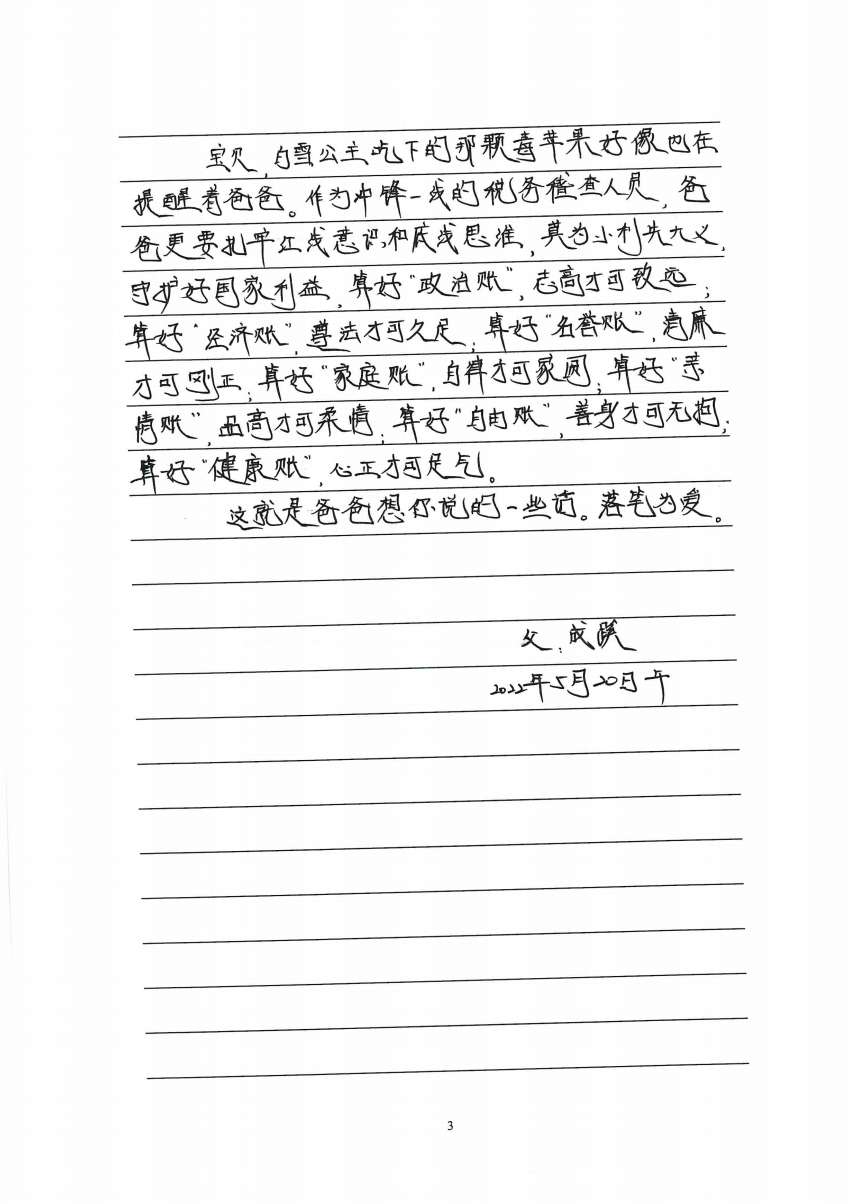 宝贝，白雪公主吃下的那颗毒苹果好像也在
提醒着爸爸。作为冲锋一线的税务稽查人员，爸
爸更要扎牢红线意识和底线思维，莫为小利失大义，
守护好国家利益，算好“政治账”，志高才可致远；
算好“经济账”，遵法才可久足；算好“名誉账”，清廉
才可刚正；算好“家庭账”，自律才可家圆；算好“亲
情账”，品高才可柔情；算好“自由账”，善身才可无拘；
算好“健康账”，心正才可足气。
这就是爸爸想你说的一些话。落笔为爱。
父：成
2022年5月20日午
3